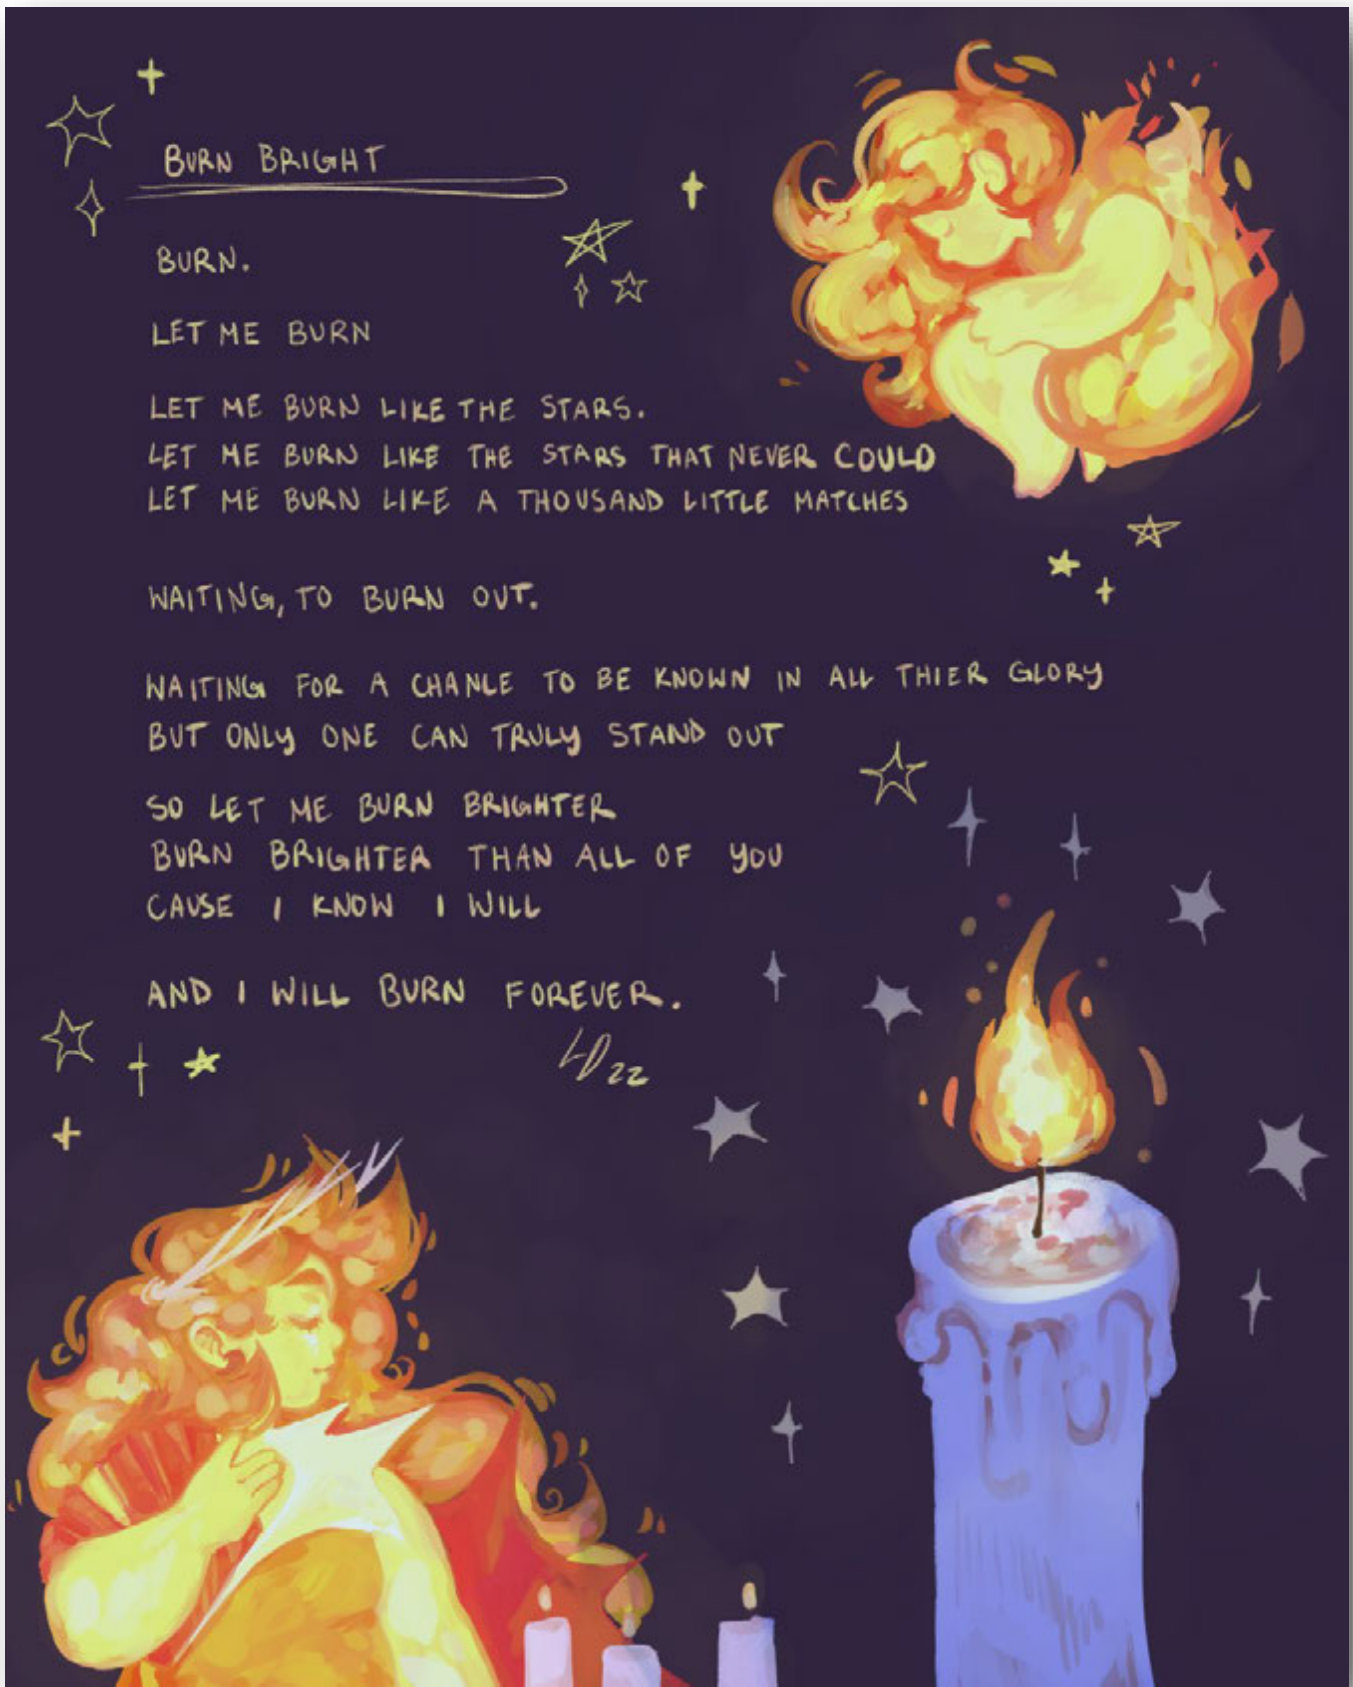 BURN BRIGHT
BURN.
LET ME BURN
LET ME BURN LIKE THE STARS.
LET ME BURN LIKE THE STARS THAT NEVER COULD
LET ME BURN LIKE A THOUSAND LITTLE MATCHES
WAITING, TO BURN OUT.
WAITING FOR A CHANCE TO BE KNOWN IN ALL THIER GLORY
BUT ONLY ONE CAN TRULY STAND OUT
SO LET ME BURN BRIGHTER
BURN BRIGHTER THAN ALL OF YOU
CAUSE I KNOW I WILL
AND I WILL BURN FOREVER.
22